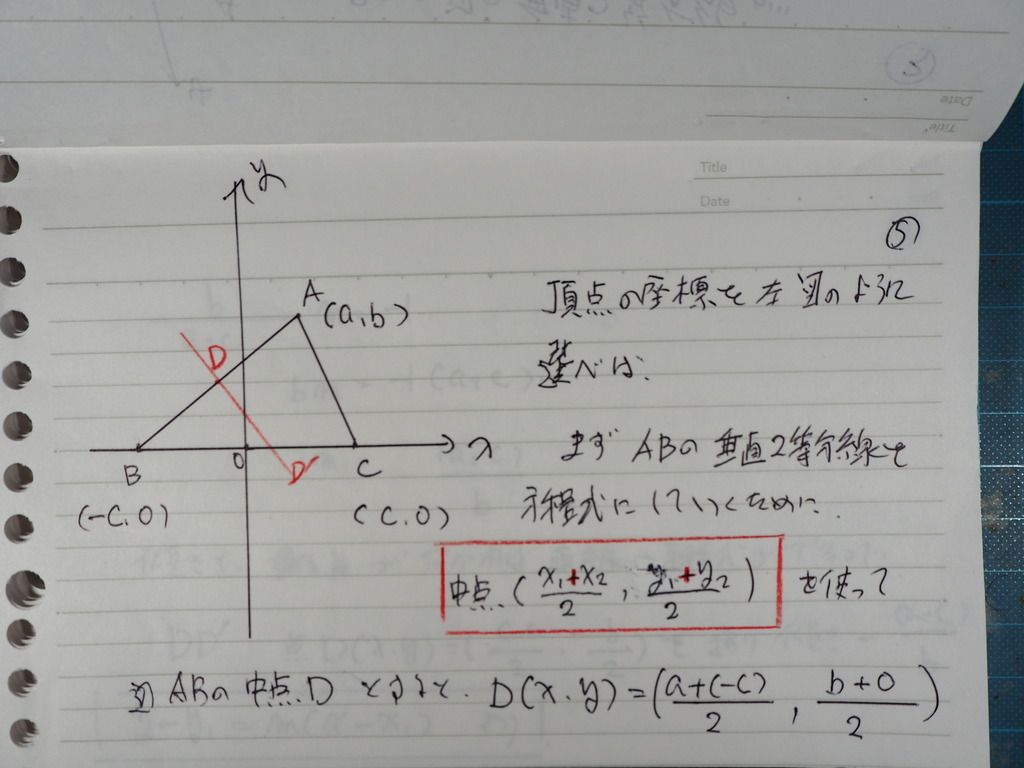 Title
Date
⑤
y
A
(a,b)
D
D'
B
O
C
x
(-C,0)
(C,0)
頂点の座標を左図のように
選べば、
まず ABの垂直2等分線を
方程式にしていくために、
中点 ( x₁+x₂/2 , y₁+y₂/2 ) を使って
ABの中点D とすると、D(x,y)=( a+(-c)/2 , b+0/2 )